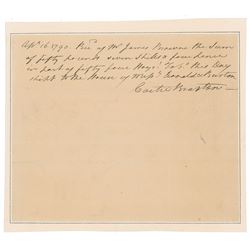 Apl. 16. 1790. Rec. of Mr James Browne the Sum
of fifty pounds seven Shills & four pence
in part of fifty four Hogs. Tob. this Day
shipt to the House of Messrs Donald & Burton
Carter Braxton